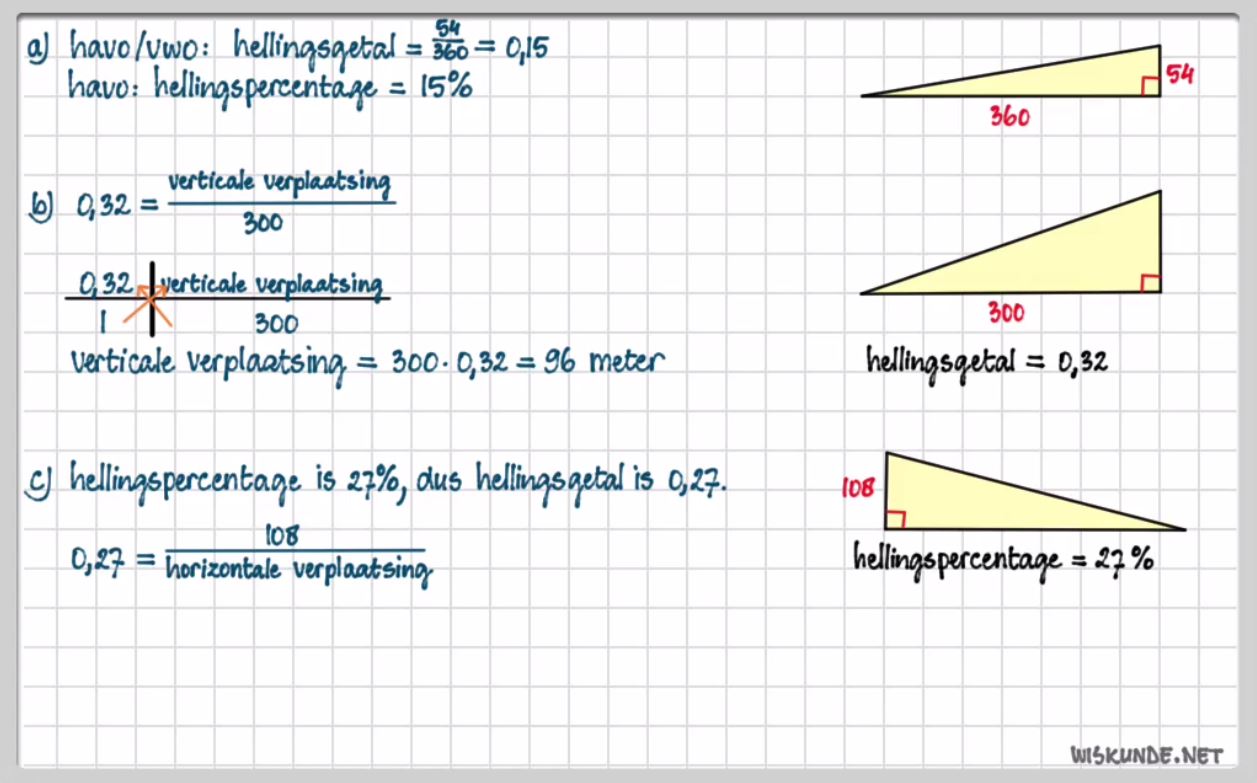 a) havo/vwo: hellingsgetal = 54/360 = 0,15
havo: hellingspercentage = 15%
54
360
b) 0,32 = verticale verplaatsing / 300
0,32 verticale verplaatsing
1 300
verticale verplaatsing = 300 · 0,32 = 96 meter
300
hellingsgetal = 0,32
c) hellingspercentage is 27%, dus hellingsgetal is 0,27.
0,27 = 108 / horizontale verplaatsing
108
hellingspercentage = 27%
WISKUNDE.NET